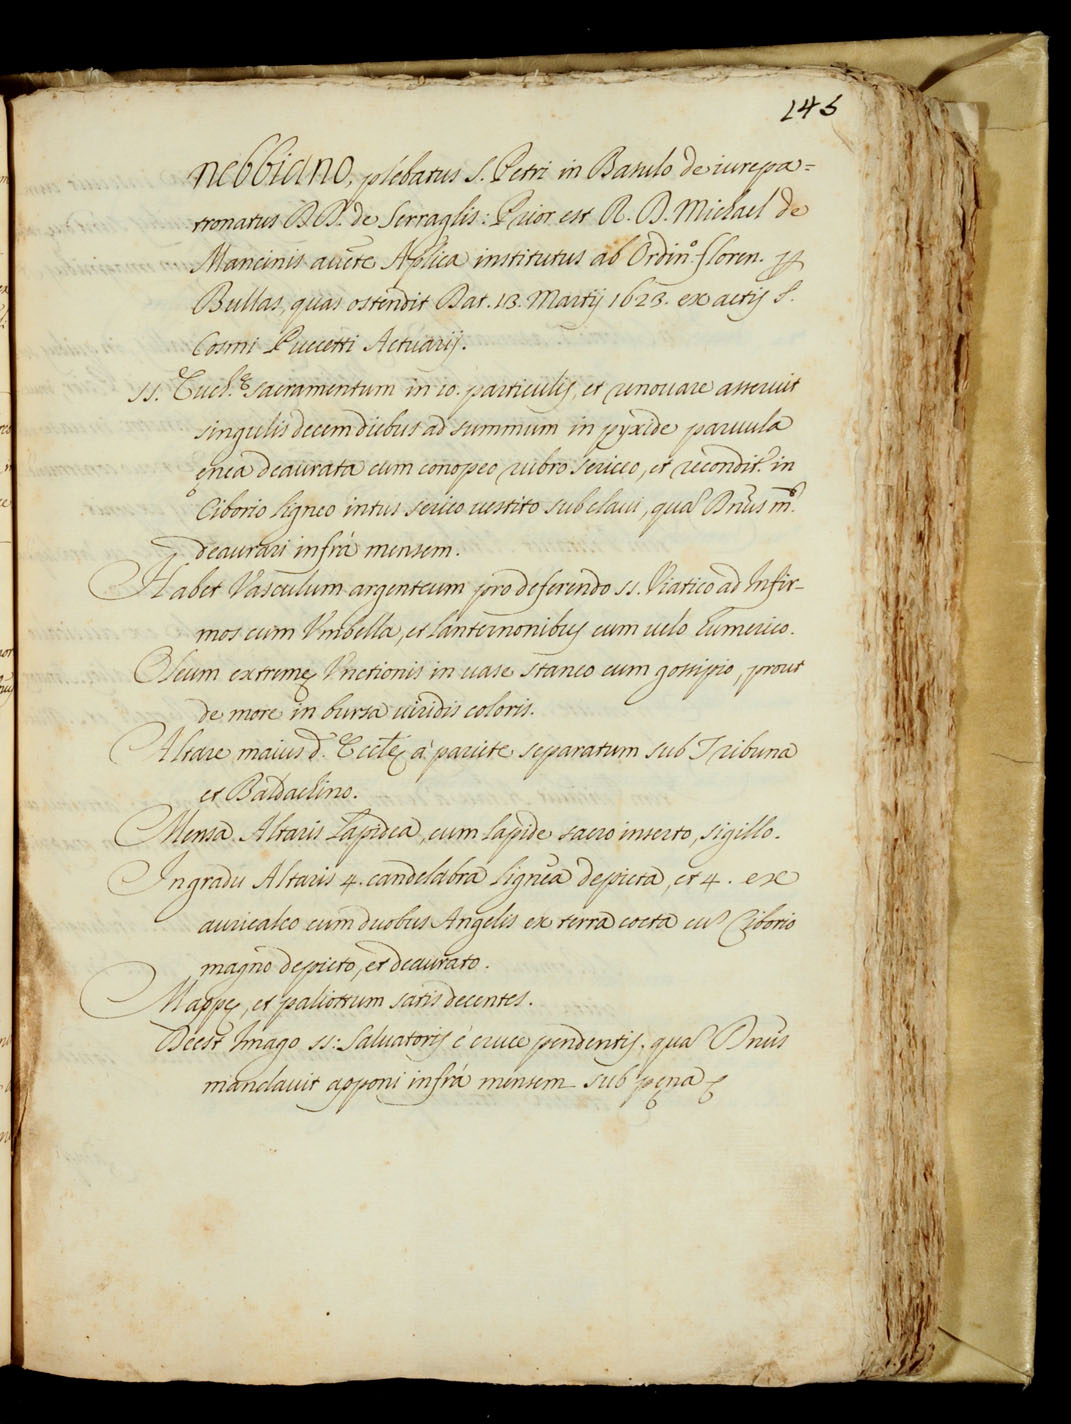 145
nebbiano, plebatus S. Petri in Basulo de iurepa=
tronatus D.D. de Serraglis: Prior est R. D. Michael de
Mancinis aucte Aplica institutus ab Ordin.º floren. p
Bullas, quas ostendit Dat. 13. Martij 1623. ex actis S.
Cosmi Puccetti Actuarij.
SS. Euch.ę sacramentum in 10. particulis, et renouare asseruit
singulis decem diebus ad summum in pyxide paruula
ęnea deaurata cum conopeo rubro sericeo, et recondit.r in
Ciborio ligneo intus serico uestito sub claui, quā Dnus m.t
deaurari infrà mensem.
Habet Vasculum argenteum pro deferendo SS. Viatico ad Infir-
mos cum Vmbella, et lanternonibus cum uelo humerico.
Oleum extremę Vnctionis in uase staneo cum gossipio, prout
de more in bursa uiridis coloris.
Altare maius d. Eccłę à pariete separatum sub Tribuna
et Baldachino.
Mensa Altaris Lapidea, cum lapide sacro inserto, sigillo.
In gradu Altaris 4. candelabra lignea depicta, et 4. ex
auricalco cum duobus Angelis ex terra cocta cū Ciborio
magno depicto, et deaurato.
Mappę, et paliottum satis decentes.
Deest Imago SS: Saluatoris è cruce pendentis, quā Dnus
mandauit apponi infrà mensem sub pęna ę